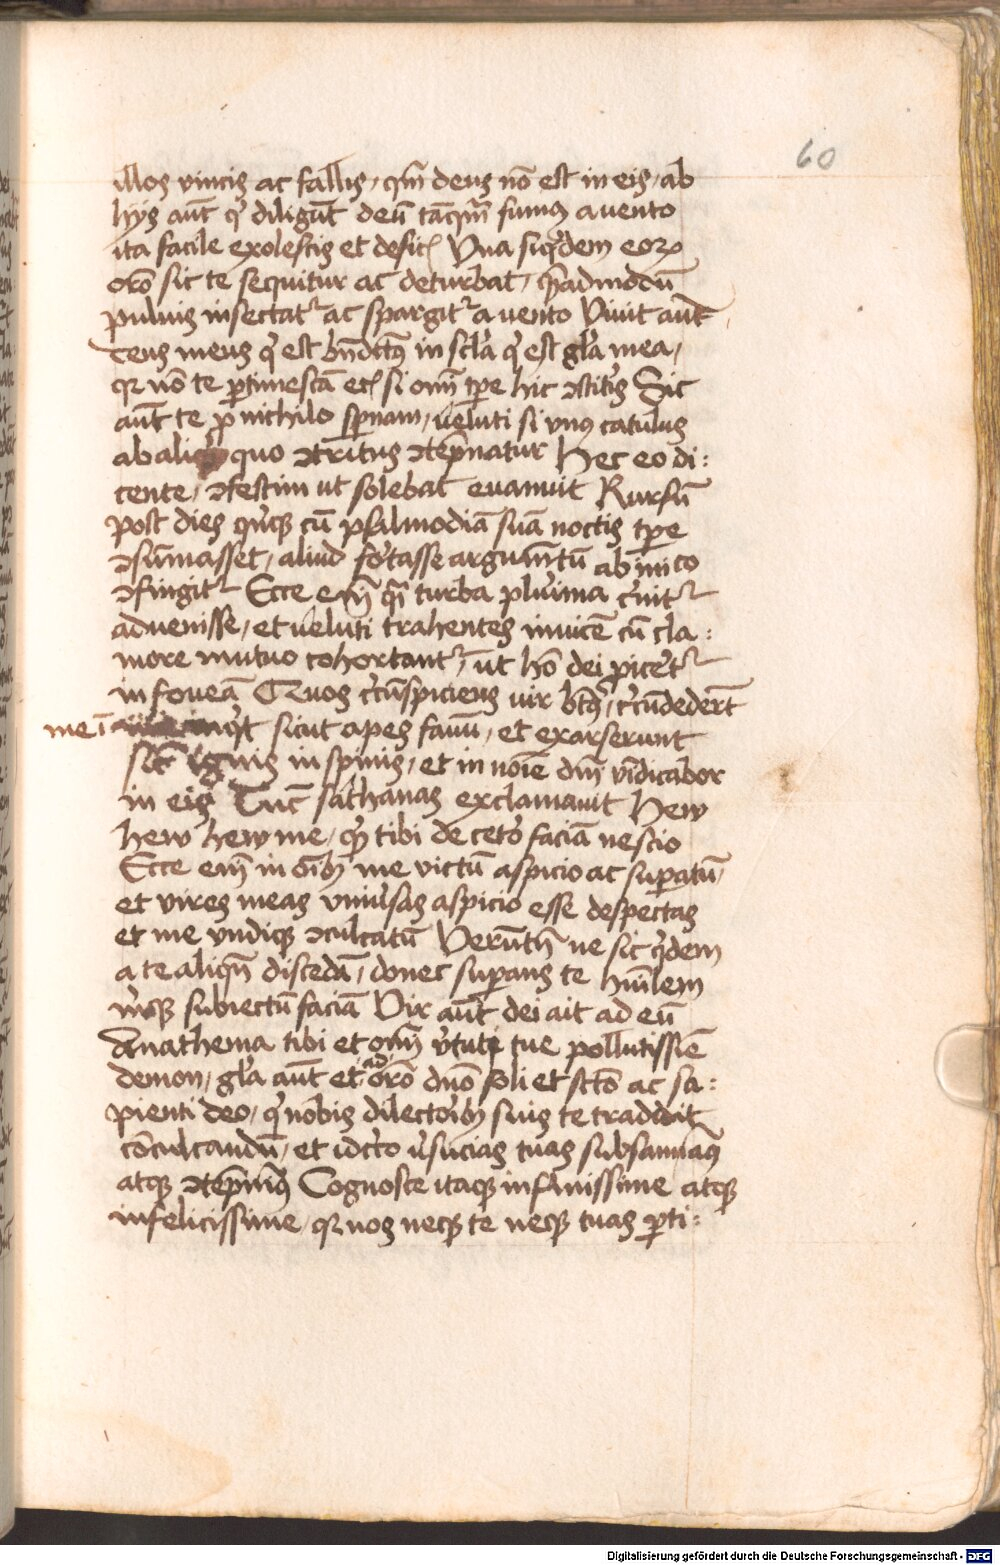 60
illos vincis ac fallis, qm̄ deus nō est in eis, ab
hijs aūt qͥ diligūt deū tāqͣm fumus a vento
ita facile exolescis et deficis Vna siqͥdem eoꝝ
orō sic te sequitur ac deturbat, qͣadmodū
puluis insectatͬ ac spargitͬ a uento Viuit aūt
deus meus qͥ est bn̄dictꝰ in scl̄a qͥ est gl̄a mea,
qꝛ nō te ꝑtimescā etsi om̄i tꝑe hic ꝯstitis Sic
aūt te ꝓ nichilo sꝑnam, ueluti si vnus catulus
ab ali quo ꝯtritus ꝯtēpnatur Hec eo di:
cente, ꝯfestim ut solebat euanuit Rursū
post dies qͥnqꝫ cū psalmodiā suā noctis tꝑe
ꝯsūmasset, aliud fortasse argumn̄tū ab inīco
ꝯfingitͬ Ecce em̄ qͣi turba plurima cͬnitͬ
aduenisse, et ueluti trahentes inuicē cū cla:
more mutuo cohortantͬ, ut hō dei ꝓicetͬ
in foueā Quos cͬcūspiciens uir btꝰ, cͬcūdedert̄
me ī qͥt sicut apes fauū, et exarserunt
sic̄ ignis in spinis, et in noīe dn̄i vīdicabor
in eis Tūc sathanas exclamauit Hew
hew hew me, qͥd tibi de ceto faciā nescio
Ecce em̄ in oībꝫ me victū aspicio ac suꝑatū,
et vires meas vniuͬsas aspicio esse despectas
et me vndiqꝫ ꝯculcatū Verūtn̄ ne sic qͥdem
a te aliqn̄ discedā, donec suꝑans te humīlem
mͥqꝫ subiectū faciā Vir aūt dei ait ad eū
Anathema tibi et om̄i vͬtuti tue pollutissīe
demon, gl̄a aūt et adorō dn̄o soli et sctō ac sa:
pienti deo, qͥ nobis dilectoribꝫ suis te tradidit
cōculcandū, et idcͬco vͬsucias tuas subsannamꝰ
atqꝫ ꝯtēpnimꝰ Cognosce itaqꝫ infirmissime atqꝫ
infelicissime, qꝛ nos neqꝫ te neqꝫ tuas ꝑti:
Digitalisierung gefördert durch die Deutsche Forschungsgemeinschaft - DFG